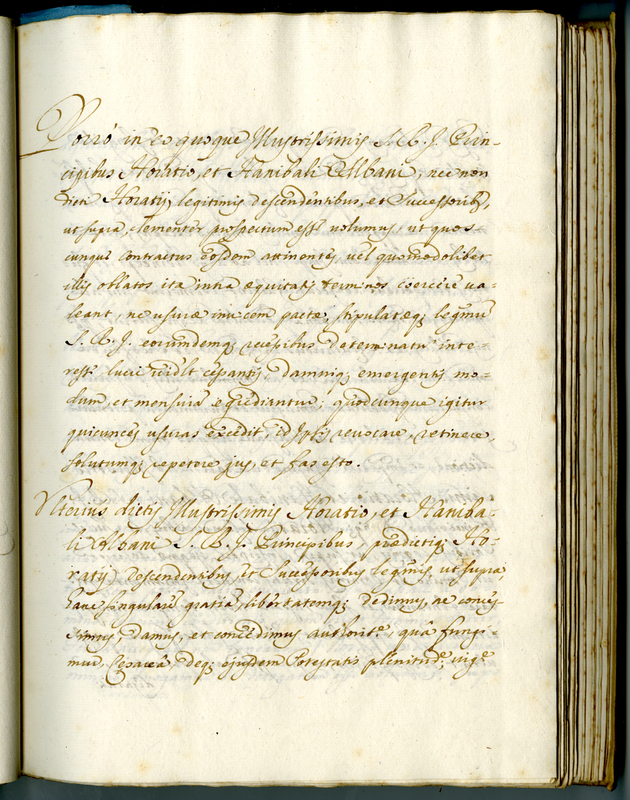 Porrò in eo quoque Illustrissimis S. R. J. Prin-
cipibus Horatio, et Hanibali Albani, nec non
dicti Horatij legitimis descendentibus, et Successorib9,
ut supra, clementer prospectum esse volumus, ut quos-
cunque contractus eosdem attinentes, vel quomodolibet
illis oblatos ita intra equitatis terminos exercere va-
leant, ne usurae invicem pacte, stipulateq; legitimū
S. R. J. eorumdemq; recessibus determinatū inte-
resse lucri cessantis, damniq; emergentis mo-
dum, et mensurā egrediantur; quodcunque igitur
quincunces usuras excedit, id Ipsis revocare, retinere,
solutumq; repetere jus, et fas esto.
Ulterius dictis Illustrissimis Horatio, et Haniba-
li Albani S. R. J. Principibus, prædictiq; Ho-
ratij descendentibus, et Successoribus legmis, ut supra,
hanc singularē gratiā, libertatemq; dedimus, ac conces-
simus, damus, et concedimus authoritē, quâ fungi-
mur, Cesareâ deq; ejusdem Potestatis plenitudē, vigē